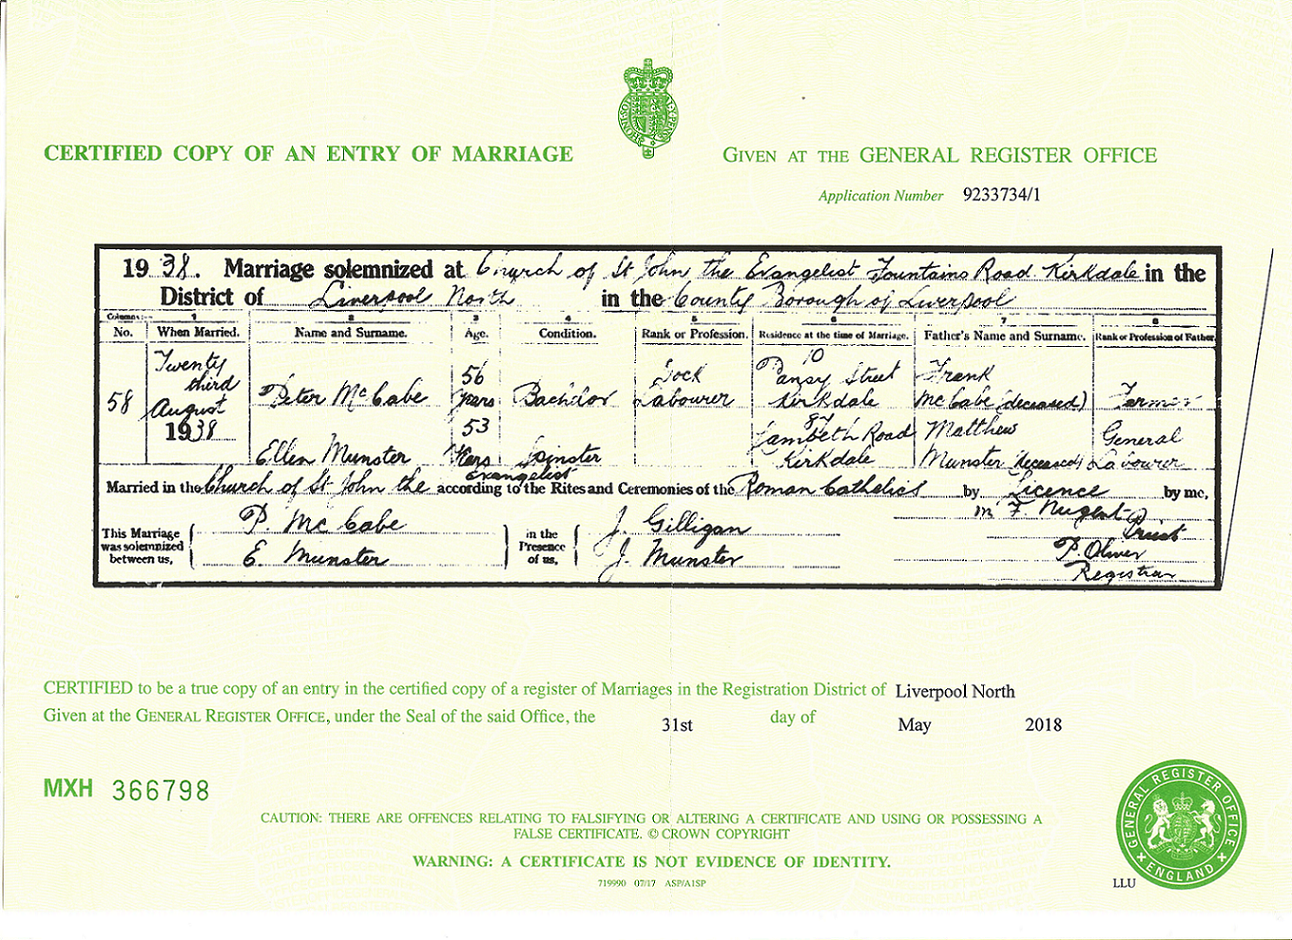 CERTIFIED COPY OF AN ENTRY OF MARRIAGE
GIVEN AT THE GENERAL REGISTER OFFICE
Application Number 9233734/1
1938. Marriage solemnized at Church of St John the Evangelist Fountains Road Kirkdale in the
District of Liverpool North in the County Borough of Liverpool
Columns:- 1 2 3 4 5 6 7 8
No. When Married. Name and Surname. Age. Condition. Rank or Profession. Residence at the time of Marriage. Father's Name and Surname. Rank or Profession of Father.
58 Twenty third August 1938
Peter McCabe 56 years Bachelor Dock Labourer 10 Pansy Street Kirkdale Frank McCabe (deceased) Farmer
Ellen Munster 53 years Spinster 87 Lambeth Road Kirkdale Matthew Munster (deceased) General Labourer
Married in the Church of St John the Evangelist according to the Rites and Ceremonies of the Roman Catholics by Licence by me,
This Marriage was solemnized between us, P. McCabe E. Munster
in the Presence of us, J. Gilligan J. Munster
F. Nugent Priest
P. Oliver
Registrar
CERTIFIED to be a true copy of an entry in the certified copy of a register of Marriages in the Registration District of Liverpool North
Given at the GENERAL REGISTER OFFICE, under the Seal of the said Office, the 31st day of May 2018
MXH 366798
CAUTION: THERE ARE OFFENCES RELATING TO FALSIFYING OR ALTERING A CERTIFICATE AND USING OR POSSESSING A
FALSE CERTIFICATE. © CROWN COPYRIGHT
WARNING: A CERTIFICATE IS NOT EVIDENCE OF IDENTITY.
719990 07/17 ASP/A1SP
LLU
GENERAL REGISTER OFFICE
ENGLAND